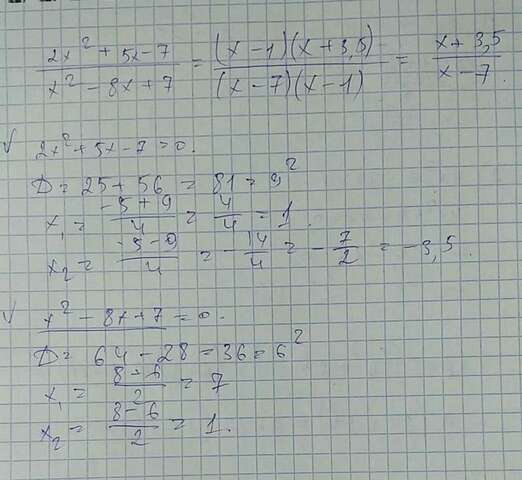 (2x² + 5x - 7)/(x² - 8x + 7) = (x - 1)(x + 3,5)/(x - 7)(x - 1) = (x + 3,5)/(x - 7)
√ 2x² + 5x - 7 = 0.
D = 25 + 56 = 81 = 9²
x₁ = (-5 + 9)/4 = 4/4 = 1
x₂ = (-5 - 9)/4 = -14/4 = -7/2 = -3,5.
√ x² - 8x + 7 = 0.
D = 64 - 28 = 36 = 6²
x₁ = (8 + 6)/2 = 7
x₂ = (8 - 6)/2 = 1.